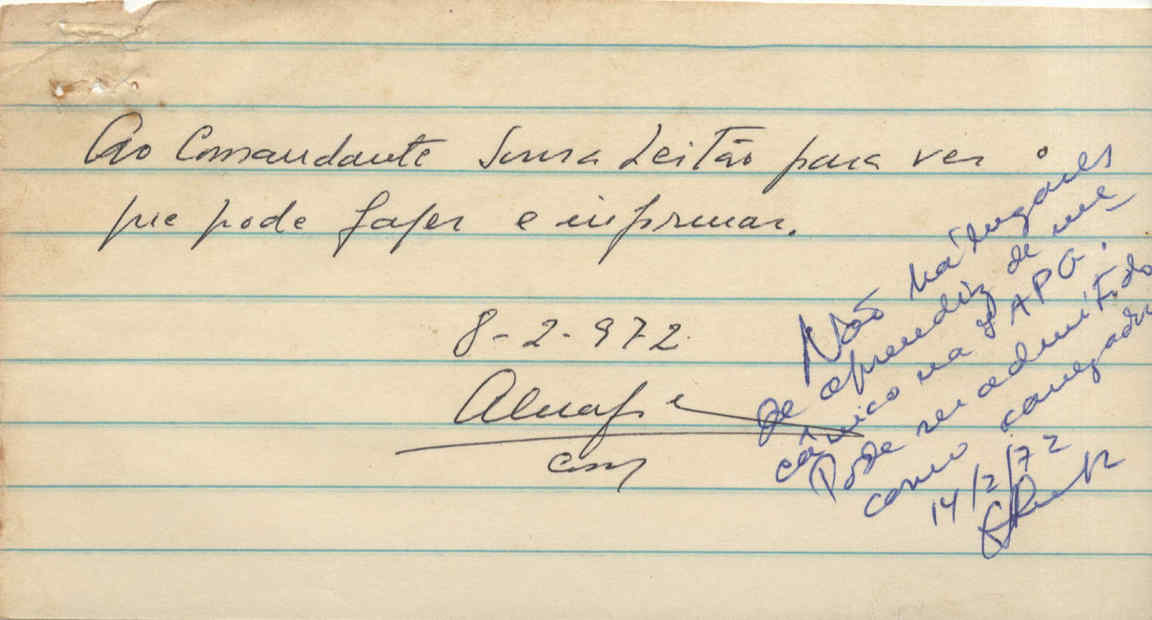 Ao Comandante Sousa Leitão para ver o
que pode fazer e informar.
8-2-972
Não há lugares
de aprendiz de me
cânico na JAPG.
Pode ser admitido
como carregador
14/2/72